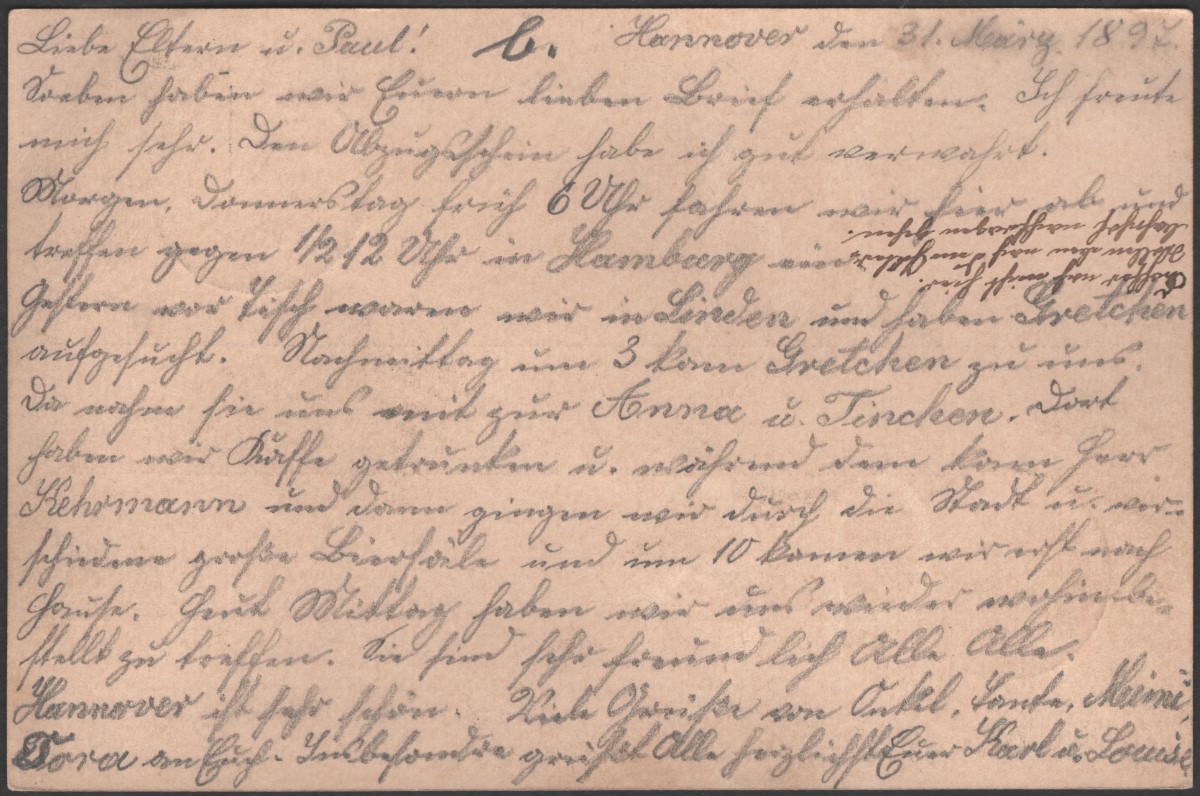 Liebe Eltern u. Paul! b. Hannover den 31. März 1897.
Soeben haben wir Euern lieben Brief erhalten. Ich freute
mich sehr. Den Abzugsschein habe ich gut verwahrt.
Morgen, Donnerstag früh 6 Uhr fahren wir hier ab und
treffen gegen 1/2 12 Uhr in Hamburg ein.
Gestern vor Tisch waren wir in Linden und haben Gretchen
aufgesucht. Nachmittag um 3 kam Gretchen zu uns.
Da nahm sie uns mit zur Anna u. Tinchen. Dort
haben wir Kaffe getrunken u. während dem kam Herr
Kehrmann und dann gingen wir durch die Stadt u. ver-
schiedene große Biersäle und um 10 kamen wir erst nach
Hause. Heut Mittag haben wir uns wieder wohin be-
stellt zu treffen. Sie sind sehr freundlich Alle Alle.
Hannover ist sehr schön. Viele Grüße von Onkel, Tante, Meimi,
Dora an Euch. Insbesondre grüßt Alle herzlichst Euer Karl u. Louise